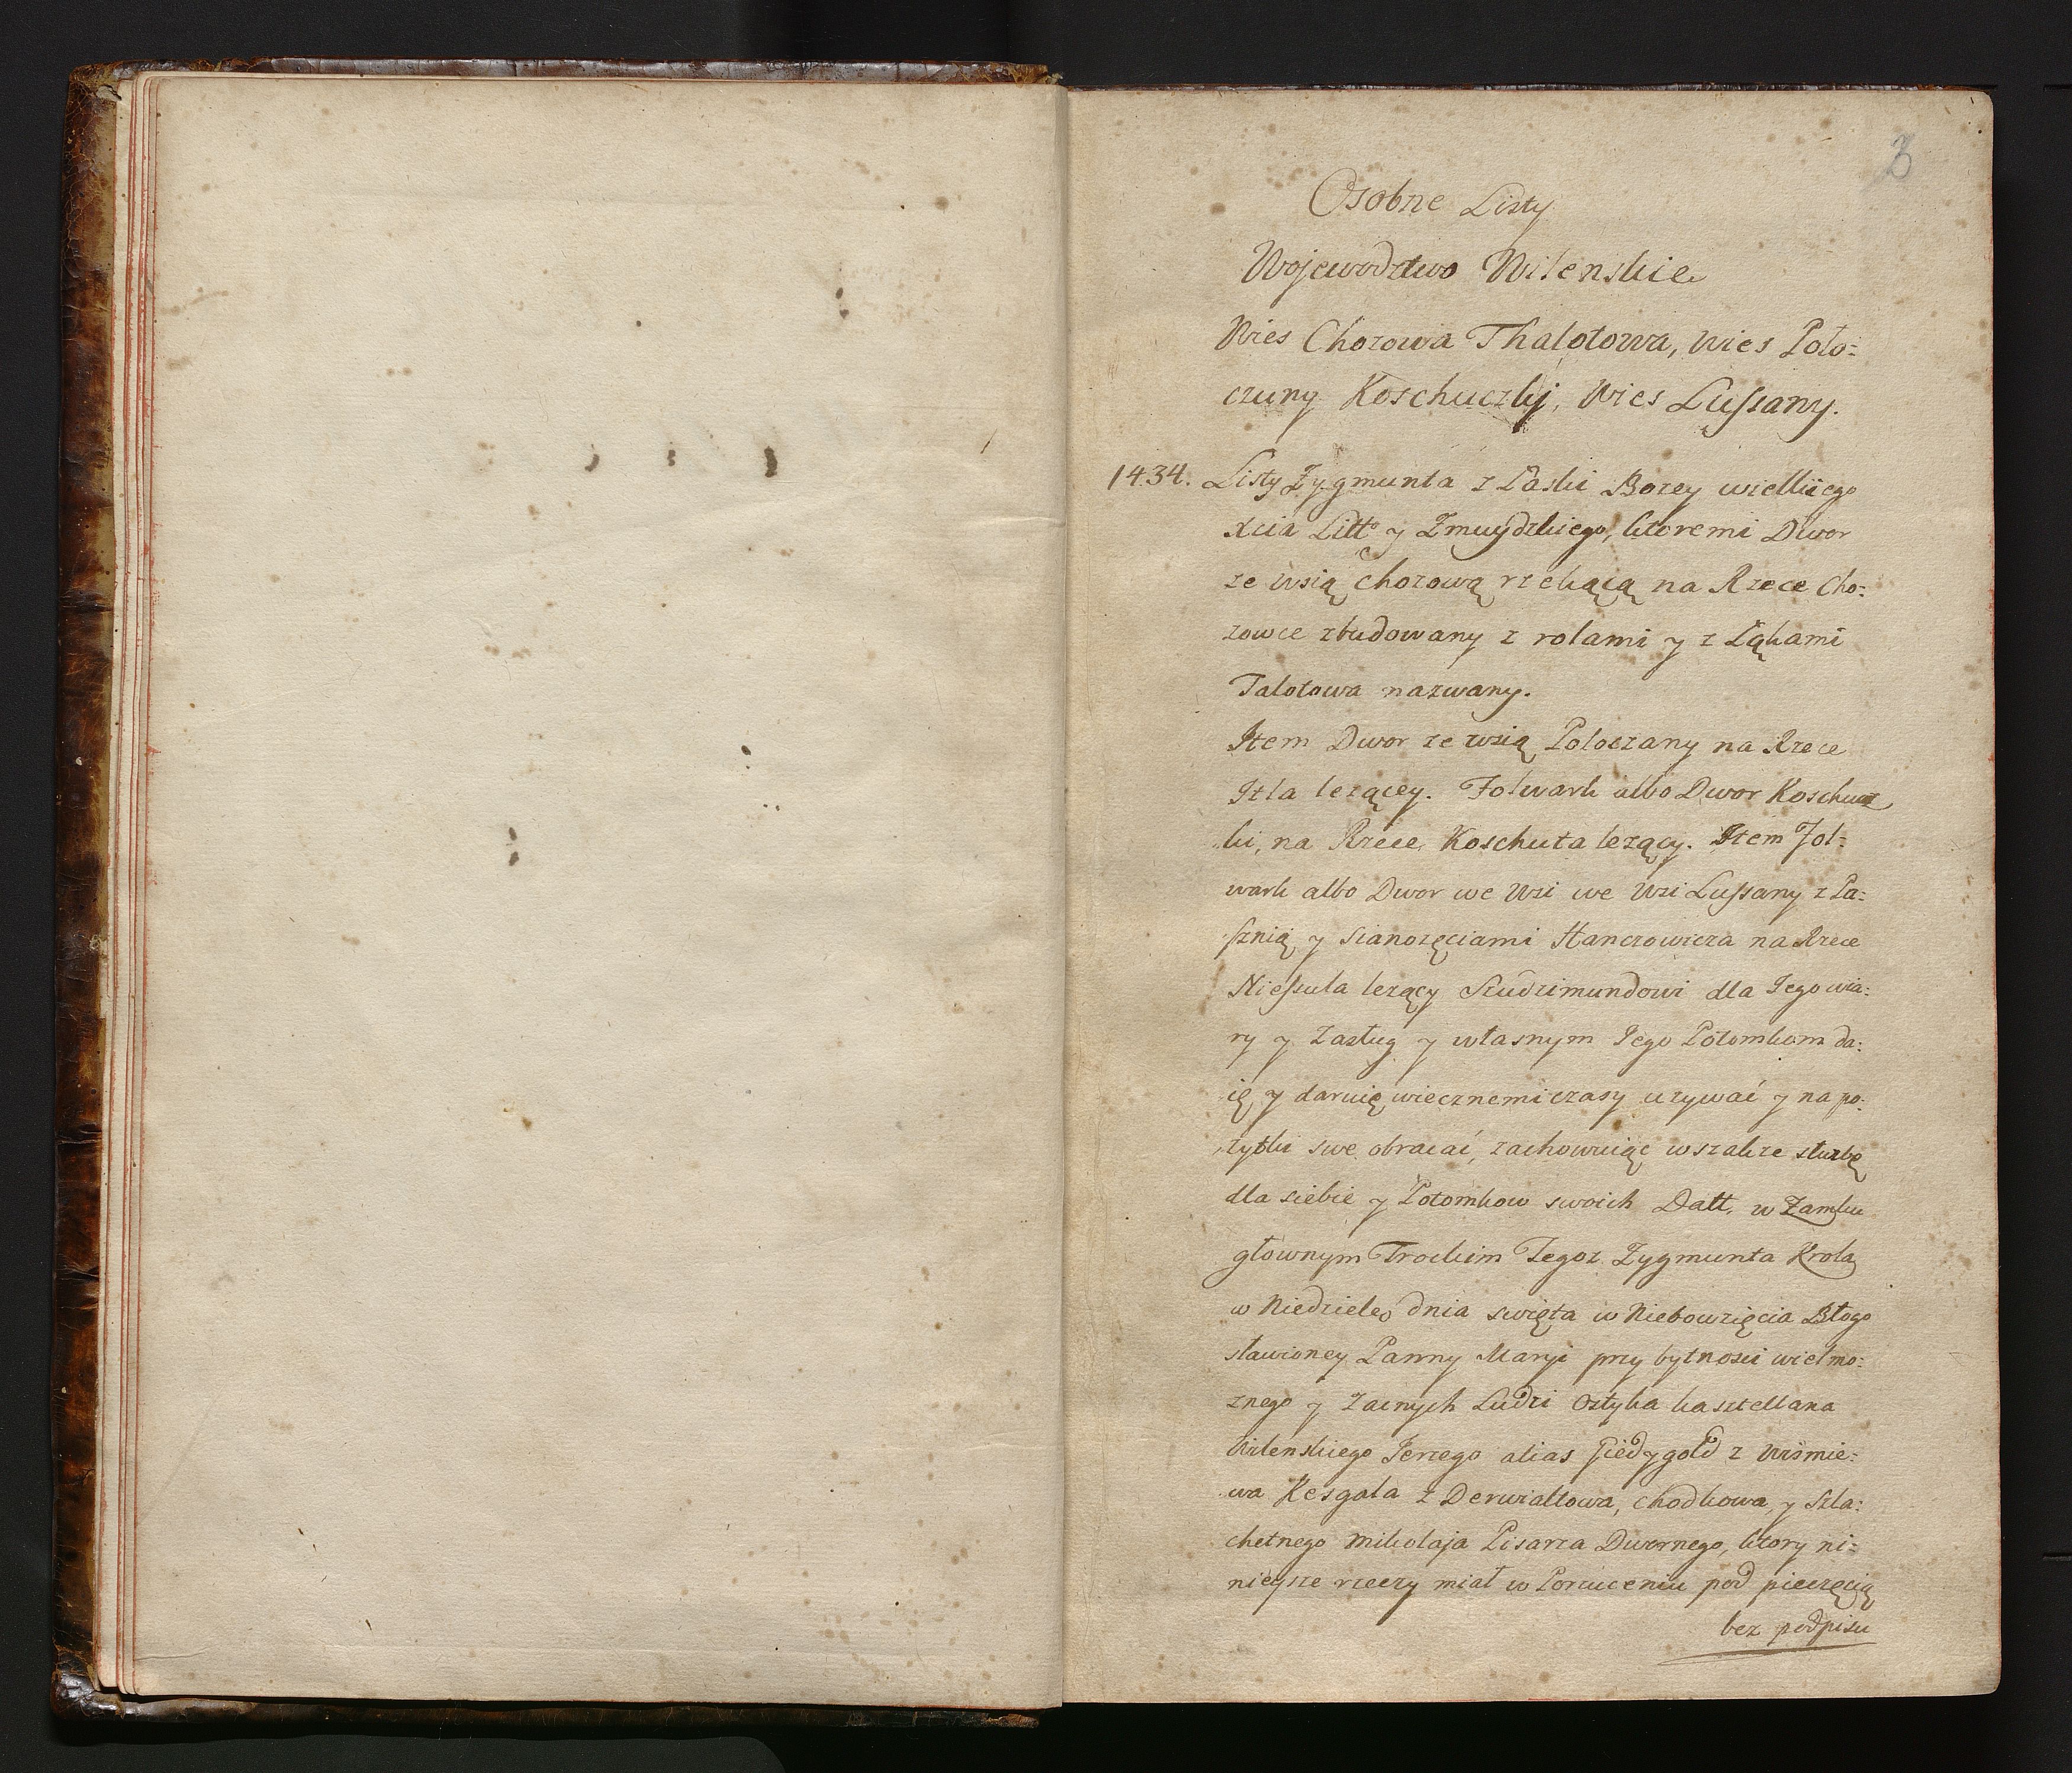 3
Osobne Listy
Wojewodztwo Wilenskie
Wies Chozowa Thalotowa, wies Poło:
czany Koschuczky, Wies Lussany.
1434. Listy Zygmunta z Łaski Bozey wielkiego
Xcia Litt° y Zmuydzkiego, ktoremi Dwor
ze wsią chozową rzekącą na Rzece Cho:
zowce zbudowany z rolami y z Łąkami
Talotowa nazwany.
Item Dwor ze wsią Poloczany na Rzece
Izla lezącey. Folwark albo Dwor Koschucz
ki, na Rzece Koschuta lezący. Item Fol:
wark albo Dwor we Wsi we Wsi Lussany z Pa:
sznią y Sianozęciami Hanczowicza na Rzece
Niessula lezący Szudzimundowi dla Jego wia:
ry y Zasług y własnym Jego Potomkom da:
ię y daruię wiecznemi czasy uzywać y na po:
zytki swe obracać, zachowuiąc wszakze słuzbę
dla siebie y Potomkow swoich Datt. w Zamku
głownym Trockim Tegoz Zygmunta Krola
w Niedziele dnia swięta w Niebowzięcia Błogo
sławioney Panny Maryi przy bytnosci wielmo:
znego y Zacnych Ludzi Ostyka kasztellana
Wilenskiego Jerzego alias Giedygołd z Wismie:
wa Kesgala z Derwiałtowa, chodkowa, y Szla:
chetnego Mikolaja Pisarza Dwornego, ktory ni:
nieysze rzeczy miał w Porzuceniu pod pieczęcią
bez podpisu